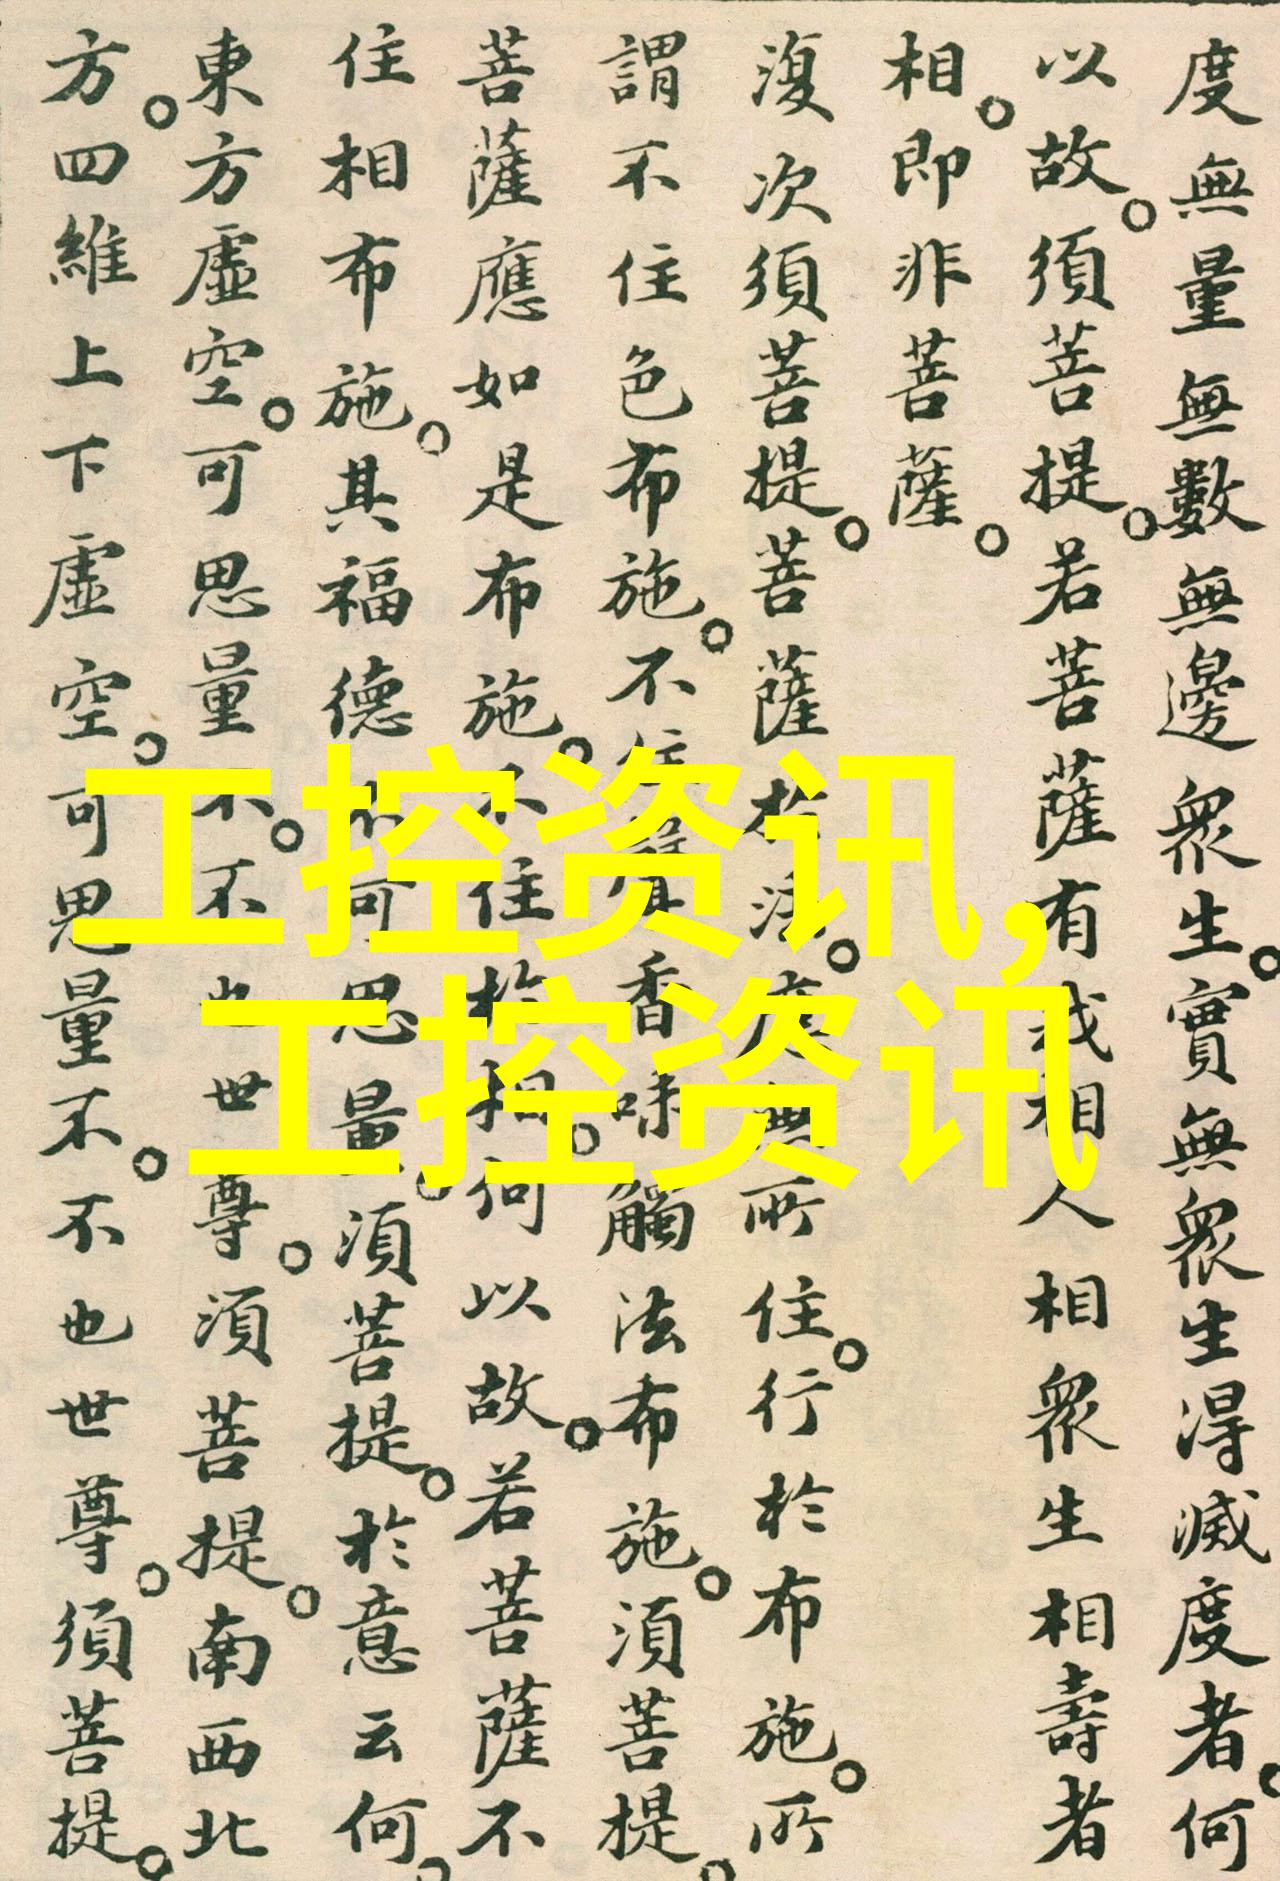 度無量無數無邊衆生。實無衆生得滅度者。何
以故。須菩提。若菩薩有我相人相衆生相壽者
相。即非菩薩。
復次須菩提。菩薩於法。應無所住。行於布施。所
謂不住色布施。不住聲香味觸法布施。須菩提。
菩薩應如是布施。不住於相。何以故。若菩薩不
住相布施。其福德不可思量。須菩提。於意云何。
東方虛空。可思量不。不也世尊。須菩提。南西北
方。四維上下虛空。可思量不。不也世尊。須菩提。
工控资讯,
工控资讯